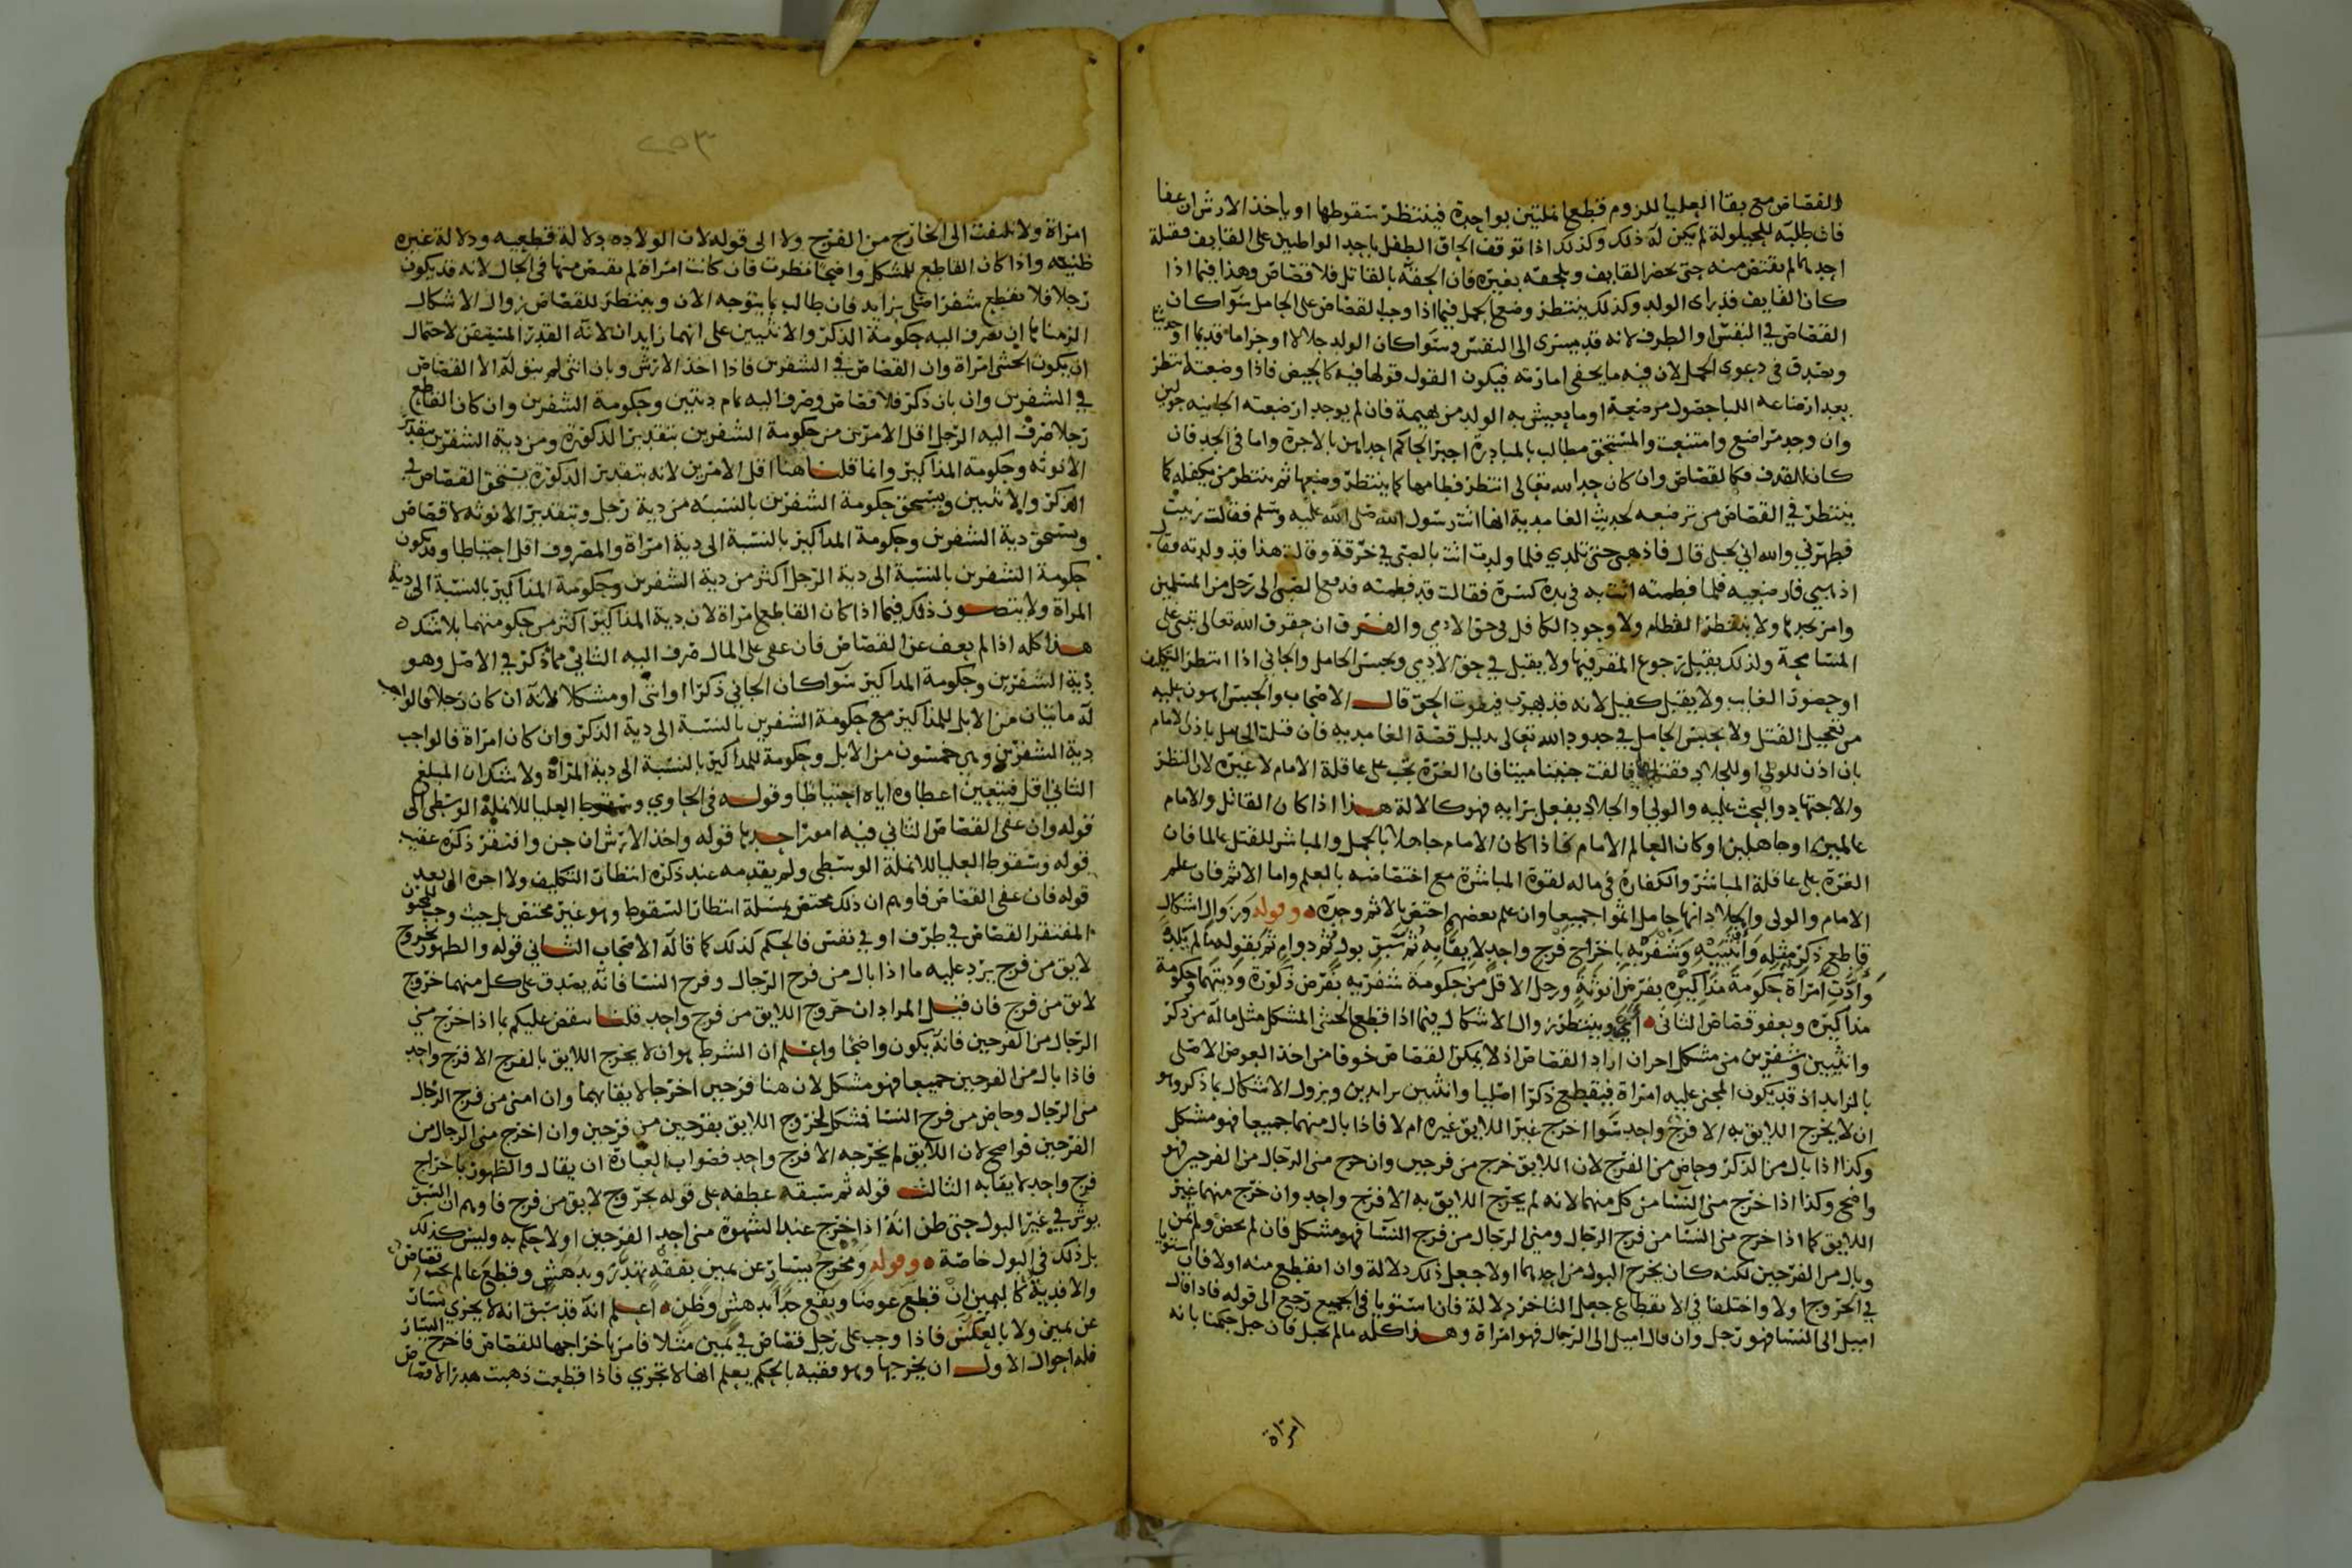 القصاص مع بقا العليا للزوم قطع انملتين بواحدة فينتظر سقوطها او ياخذ الارش ان عفا
فان طلبه للحيلولة لم يكن له ذلك وكذلك اذا توقف الحاق الطفل باحد الواطيين على القايف فقتله
احدهما لم يقتص منه حتى يحضر القايف ويلحقه بغيره فان الحقه بالقاتل فلا قصاص وهذا فيما اذا
كان القايف قد راى الولد وكذلك ينتظر وضع الحمل فيما اذا وجب القصاص على الحامل سوا كان
القصاص في النفس او الطرف لانه قد يسرى الى النفس وسوا كان الولد حلالا او حراما قديما او حديثا
ويصدق في دعوى الحمل لان فيه ما يخفى امارته فيكون القول قولها فيه كالحيض فاذا وضعته انتظر
بعد ارضاعه اللبا حصول مرضعة او ما يعيش به الولد من بهيمة فان لم يوجد ارضعته الجانيه حولين
وان وجد مراضع وامتنعت والمستحق مطالب بالمبادرة اجبر الحاكم احداهن بالاجرة واما في الحد فان
كان للقذف فكالقصاص وان كان حدا لله تعالى انتظر فطامها كما ينتظر وضعها ثم ينتظر من يكفله كما
ينتظر في القصاص من ترضعه لحديث الغامدية انها اتت رسول الله صلى الله عليه وسلم فقالت زنيت
فطهرني والله اني لحبلى قال فاذهبي حتى تلدي فلما ولدت اتت بالصبى في خرقة وقالت هذا قد ولدته فقال
اذهبي فارضعيه فلما فطمته اتت به في يده كسرة فقالت قد فطمته فدفع الصبى الى رجل من المسلمين
وامر بحدها ولا ينتظر الفطام ولا وجود الكافل في حق الادمي والفرق ان حقوق الله تعالى تبنى على
المسامحة ولذلك يقبل رجوع المقر فيها ولا يقبل في حق الادمي ويحبس الحامل والجاني اذا انتظر التكليف
او حضور الغايب ولا يقبل كفيل لانه قد يهرب فيفوت الحق قال الاصحاب والحبس اهون عليه
من تعجيل القتل ولا يحبس الحامل في حدود الله تعالى بدليل قصة الغامدية فان قتلت الحامل باذن الامام
بان اذن للولي او للجلاد فقتلها فالقت جنينا ميتا فان الغرة تجب على عاقلة الامام لا غيره لان النظر
والاجتهاد والبحث عليه والولي والجلاد يفعل برايه فهو كالالة هذا اذا كان القاتل والامام
عالمين او جاهلين او كان العالم الامام فاذا كان الامام جاهلا بالحمل والمباشر للقتل عالما فان
الغرة على عاقلة المباشر والكفارة في ماله لقوة المباشرة مع اختصاصه بالعلم واما الاثم فان علم
الامام والولى والجلاد انها حامل اثموا جميعا وان علم بعضهم اختص بالاثم وحده وقوله وزوال اشكال
قاطع ذكر مثله وانثييه وشفريه باخراج فرج واحد لايقا به ثم سبق بول ثم دوام ثم بقوله ما لم يلد
وادت امراة حكومة مذاكيره بفرض انوثة ورجل الاقل من حكومة شفريه بفرض ذكورة وديتهما وحكومة
مذاكيره وبعفو قصاص الثانى اي وينتظر زوال الاشكال فيما اذا قطع الخنثى المشكل مثل ماله من ذكر
وانثيين وشفرين من مشكل اخر ان اراد القصاص اذ لا يمكن القصاص خوفا من اخذ العوض الاصلى
بالزايد اذ قد يكون المجنى عليه امراة فيقطع ذكرا اصليا وانثيين بزايدين ويزول الاشكال بما ذكر وهو
ان لا يخرج اللايق به الا فرج واحد سوا اخرج غير اللايق غيره ام لا فاذا بال منهما جميعا فهو مشكل
وكذا اذا بال من الذكر وحاض من الفرج لان اللايق خرج من فرجين وان خرج منى الرجال من الفرجين فهو
واضح وكذا اذا خرج منى النسا من كل منهما لانه لم يخرج اللايق به الا فرج واحد وان خرج منهما غير
اللايق كما اذا خرج منى النسا من فرج الرجال ومنى الرجال من فرج النسا فهو مشكل فان لم يحض ولم يمن
وبال من الفرجين لكنه كان يخرج البول من احدهما اولا جعل ذلك دلالة وان انقطع منه اولا فان استويا
في الخروج اولا واختلفا في الانقطاع جعل التاخر دلالة فان استويا في الجميع رجع الى قوله فاذا قال
اميل الى النسا فهو رجل وان قال اميل الى الرجال فهو امراة وهذا كله ما لم يحبل فان حبل حكمنا بانه
امراة
امراة ولا نلتفت الى الخارج من الفرج ولا الى قوله لان الولادة دلالة قطعيه ودلالة غيره
ظنيه واذا كان القاطع للمشكل واضحا نظرت فان كانت امراة لم يقتص منها في الحال لانه قد يكون
رجلا فلا يقطع شفر اصلي بزايد فان طالب بما يتوجه الان وينتظر للقصاص زوال الاشكال
الزمناها ان تصرف اليه حكومة الذكر والانثيين على انهما زايدان لانه القدر المتيقن لاحتمال
ان يكون الخنثى امراة وان القصاص في الشفرين فاذا اخذ الارش وبان انثى لم يبق له الا القصاص
في الشفرين وان بان ذكر فلا قصاص وصرف اليه تمام ديتين وحكومة الشفرين وان كان القاطع
رجلا صرف اليه الرجل اقل الامرين من حكومة الشفرين بتقدير الذكورة ومن دية الشفرين بتقدير
الانوثه وحكومة المذاكير وانما قلنا هنا اقل الامرين لانه بتقدير الذكورة يستحق القصاص في
الذكر والانثيين ويستحق حكومة الشفرين بالنسبه من دية رجل وبتقدير الانوثه لا قصاص
ويستحق دية الشفرين وحكومة المذاكير بالنسبة الى دية امراة والمصروف اقل احتياطا وقد يكون
حكومة الشفرين بالنسبة الى دية الرجل اكثر من دية الشفرين وحكومة المذاكير بالنسبة الى دية
المراة ولا يتصور ذلك فيما اذا كان القاطع امراة لان دية المذاكير اكثر من حكومتهما بلا شك
هذا كله اذا لم يعف عن القصاص فان عفى على المال صرف اليه الثاني مما ذكر في الاصل وهو
دية الشفرين وحكومة المذاكير سوا كان الجاني ذكرا او انثى او مشكلا لانه ان كان رجلا فالواجب
له مايتان من الابل للمذاكير مع حكومة الشفرين بالنسبة الى دية الذكر وان كان امراة فالواجب
دية الشفرين وهي خمسون من الابل وحكومة للمذاكير بالنسبة الى دية المراة ولا شك ان المبلغ
الثاني اقل فيتعين اعطاوه اياه احتياطا وقوله في الحاوي وسقوط العليا للانملة الوسطى الى
قوله وان عفى القصاص الثاني فيه امور احدها قوله واخذ الارش ان جن وافتقر ذكره عقيب
قوله وسقوط العليا للانملة الوسطى ولم يقدمه عند ذكره انتظار التكليف ولا اخره الى بعد
قوله فان عفى القصاص فاوهم ان ذلك مختص بمسلة انتظار السقوط وهو غير مختص بل حيث وجب للمجنون
المفتقر القصاص في طرف او في نفس فالحكم كذلك كما قاله الاصحاب الثاني قوله والظهور بخروج
لايق من فرج يرد عليه ما اذا بال من فرج الرجال وفرج النسا فانه يصدق على كل منهما خروج
لايق من فرج فان قيل المراد ان خروج اللايق من فرج واحد قلنا ينقض عليكم بما اذا خرج مني
الرجال من الفرجين فانه يكون واضحا واعلم ان الشرط هو ان لا يخرج اللايق بالفرج الا فرج واحد
فاذا بال من الفرجين جميعا فهو مشكل لان هنا فرجين اخرجا لايقا بهما وان امنى من فرج الرجال
منى الرجال وحاض من فرج النسا فمشكل لخروج اللايق بفرجين من فرجين وان اخرج منى الرجال من
الفرجين فواضح لان اللايق لم يخرجه الا فرج واحد فصواب العبارة ان يقال والظهور باخراج
فرج واحد لايقا به الثالث قوله ثم سبقه عطفه على قوله بخروج لايق من فرج فاوهم ان السبق
يوثر في غير البول حتى ظن انه اذا خرج عند الشهوة منى احد الفرجين اولا حكم به وليس كذلك
بل ذلك في البول خاصة وقوله ومخرج يسار عن يمين بفقه تهدر وبدهش وقطع عالم تحت قصاص
والا فدية كاليمين ان قطع عوضا ويقع حدا بدهش وظن اعلم انه قد سبق انه لا يجزي يسار
عن يمين ولا بالعكس فاذا وجب على رجل قصاص في يمين مثلا فامر باخراجها للقصاص فاخرج اليسار
فله احوال الاول ان يخرجها وهو فقيه بالحكم يعلم انها لا تجزي فاذا قطعت ذهبت هدرا لا قصاص